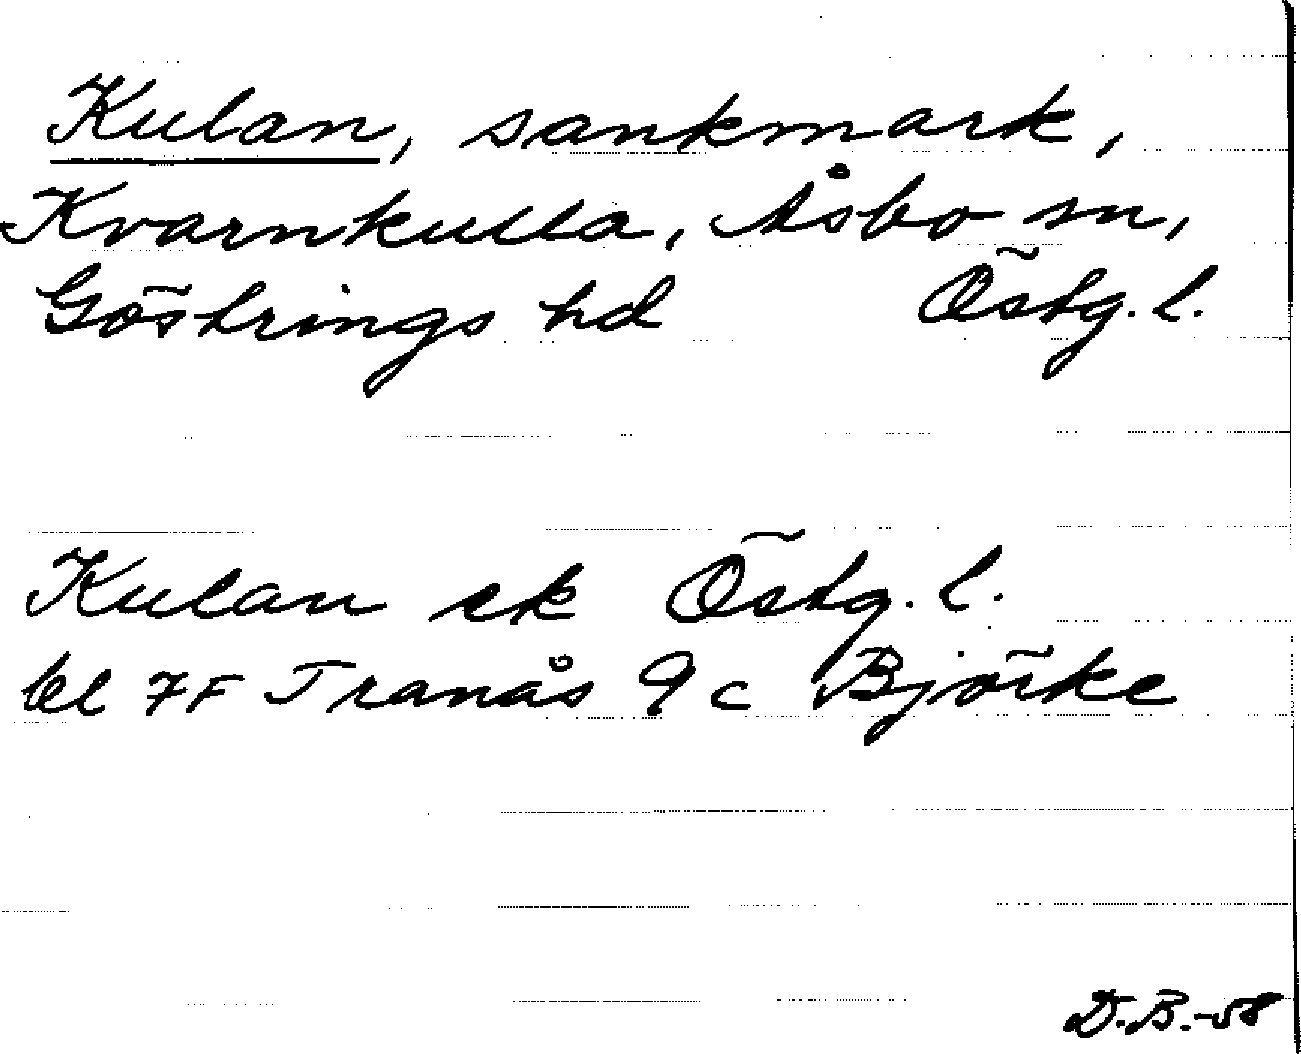 Kulan, sankmark,
Kvarnkulla, Åsbo sn,
Göstrings hd Östg. l.
Kulan ek Östg. l.
bl 7F Tranås 9c Björke
D.B.-58